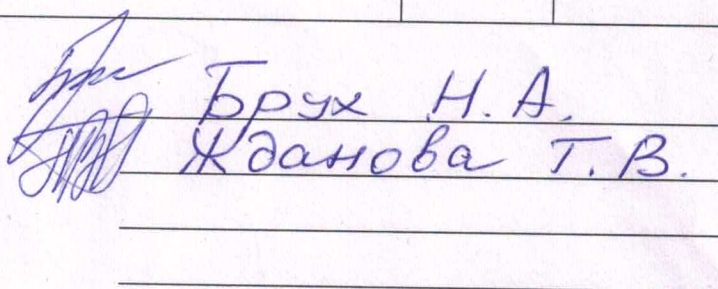 Брух Н. А.
Жданова Т. В.